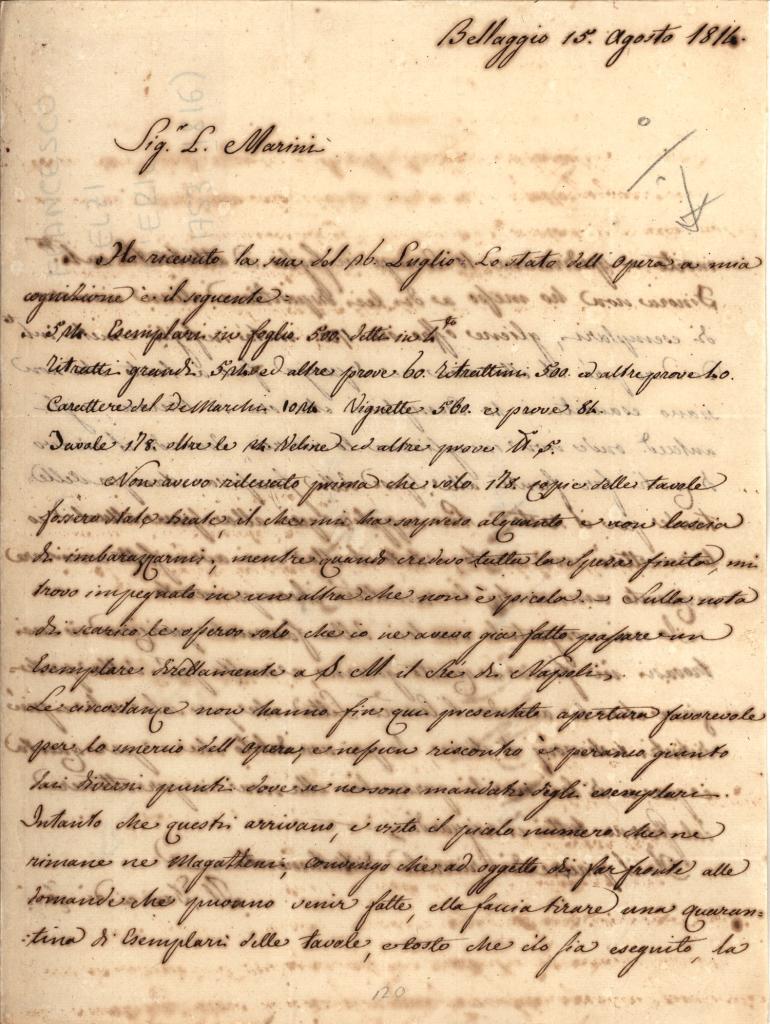 Bellaggio 15. Agosto 1814.
Sig.r L. Marini
Ho ricevuto la sua del 26. Luglio. Lo stato dell'Opera a mia
cognizione è il seguente =
514 Esemplari in foglio 500. detti in 4to
Ritratti grandi 514 ed altre prove 60. Ritrattini 500. ed altre prove 40.
Carattere del DeMarchi 1014. Vignette 560. e prove 84.
Tavole 178. oltre le 14 Veline ed altre prove 5.
Non avevo rilevato prima che solo 178. copie delle tavole
fossero state tirate, il che mi ha sorpreso alquanto e non lascia
di imbarazzarmi, mentre quando credevo tutta la Spesa finita, mi
trovo impegnato in un altra che non è picola. Sulla nota
di scarico le osservo solo che io ne avevo già fatto passare un
Esemplare direttamente a S. M il Rè di Napoli.
Le circostanze non hanno fin qui presentato apertura favorevole
per lo smercio dell'Opera, e nessun riscontro è peranco giunto
dai diversi punti dove se ne sono mandati degli esemplari.
Intanto che questi arrivano, e visto il picolo numero che ne
rimane ne Magazzeni, convengo che ad oggetto di far fronte alle
domande che puonno venir fatte, ella faccia tirare una quaran=
=tina di Esemplari delle tavole, e tosto che ciò sia eseguito, la
120